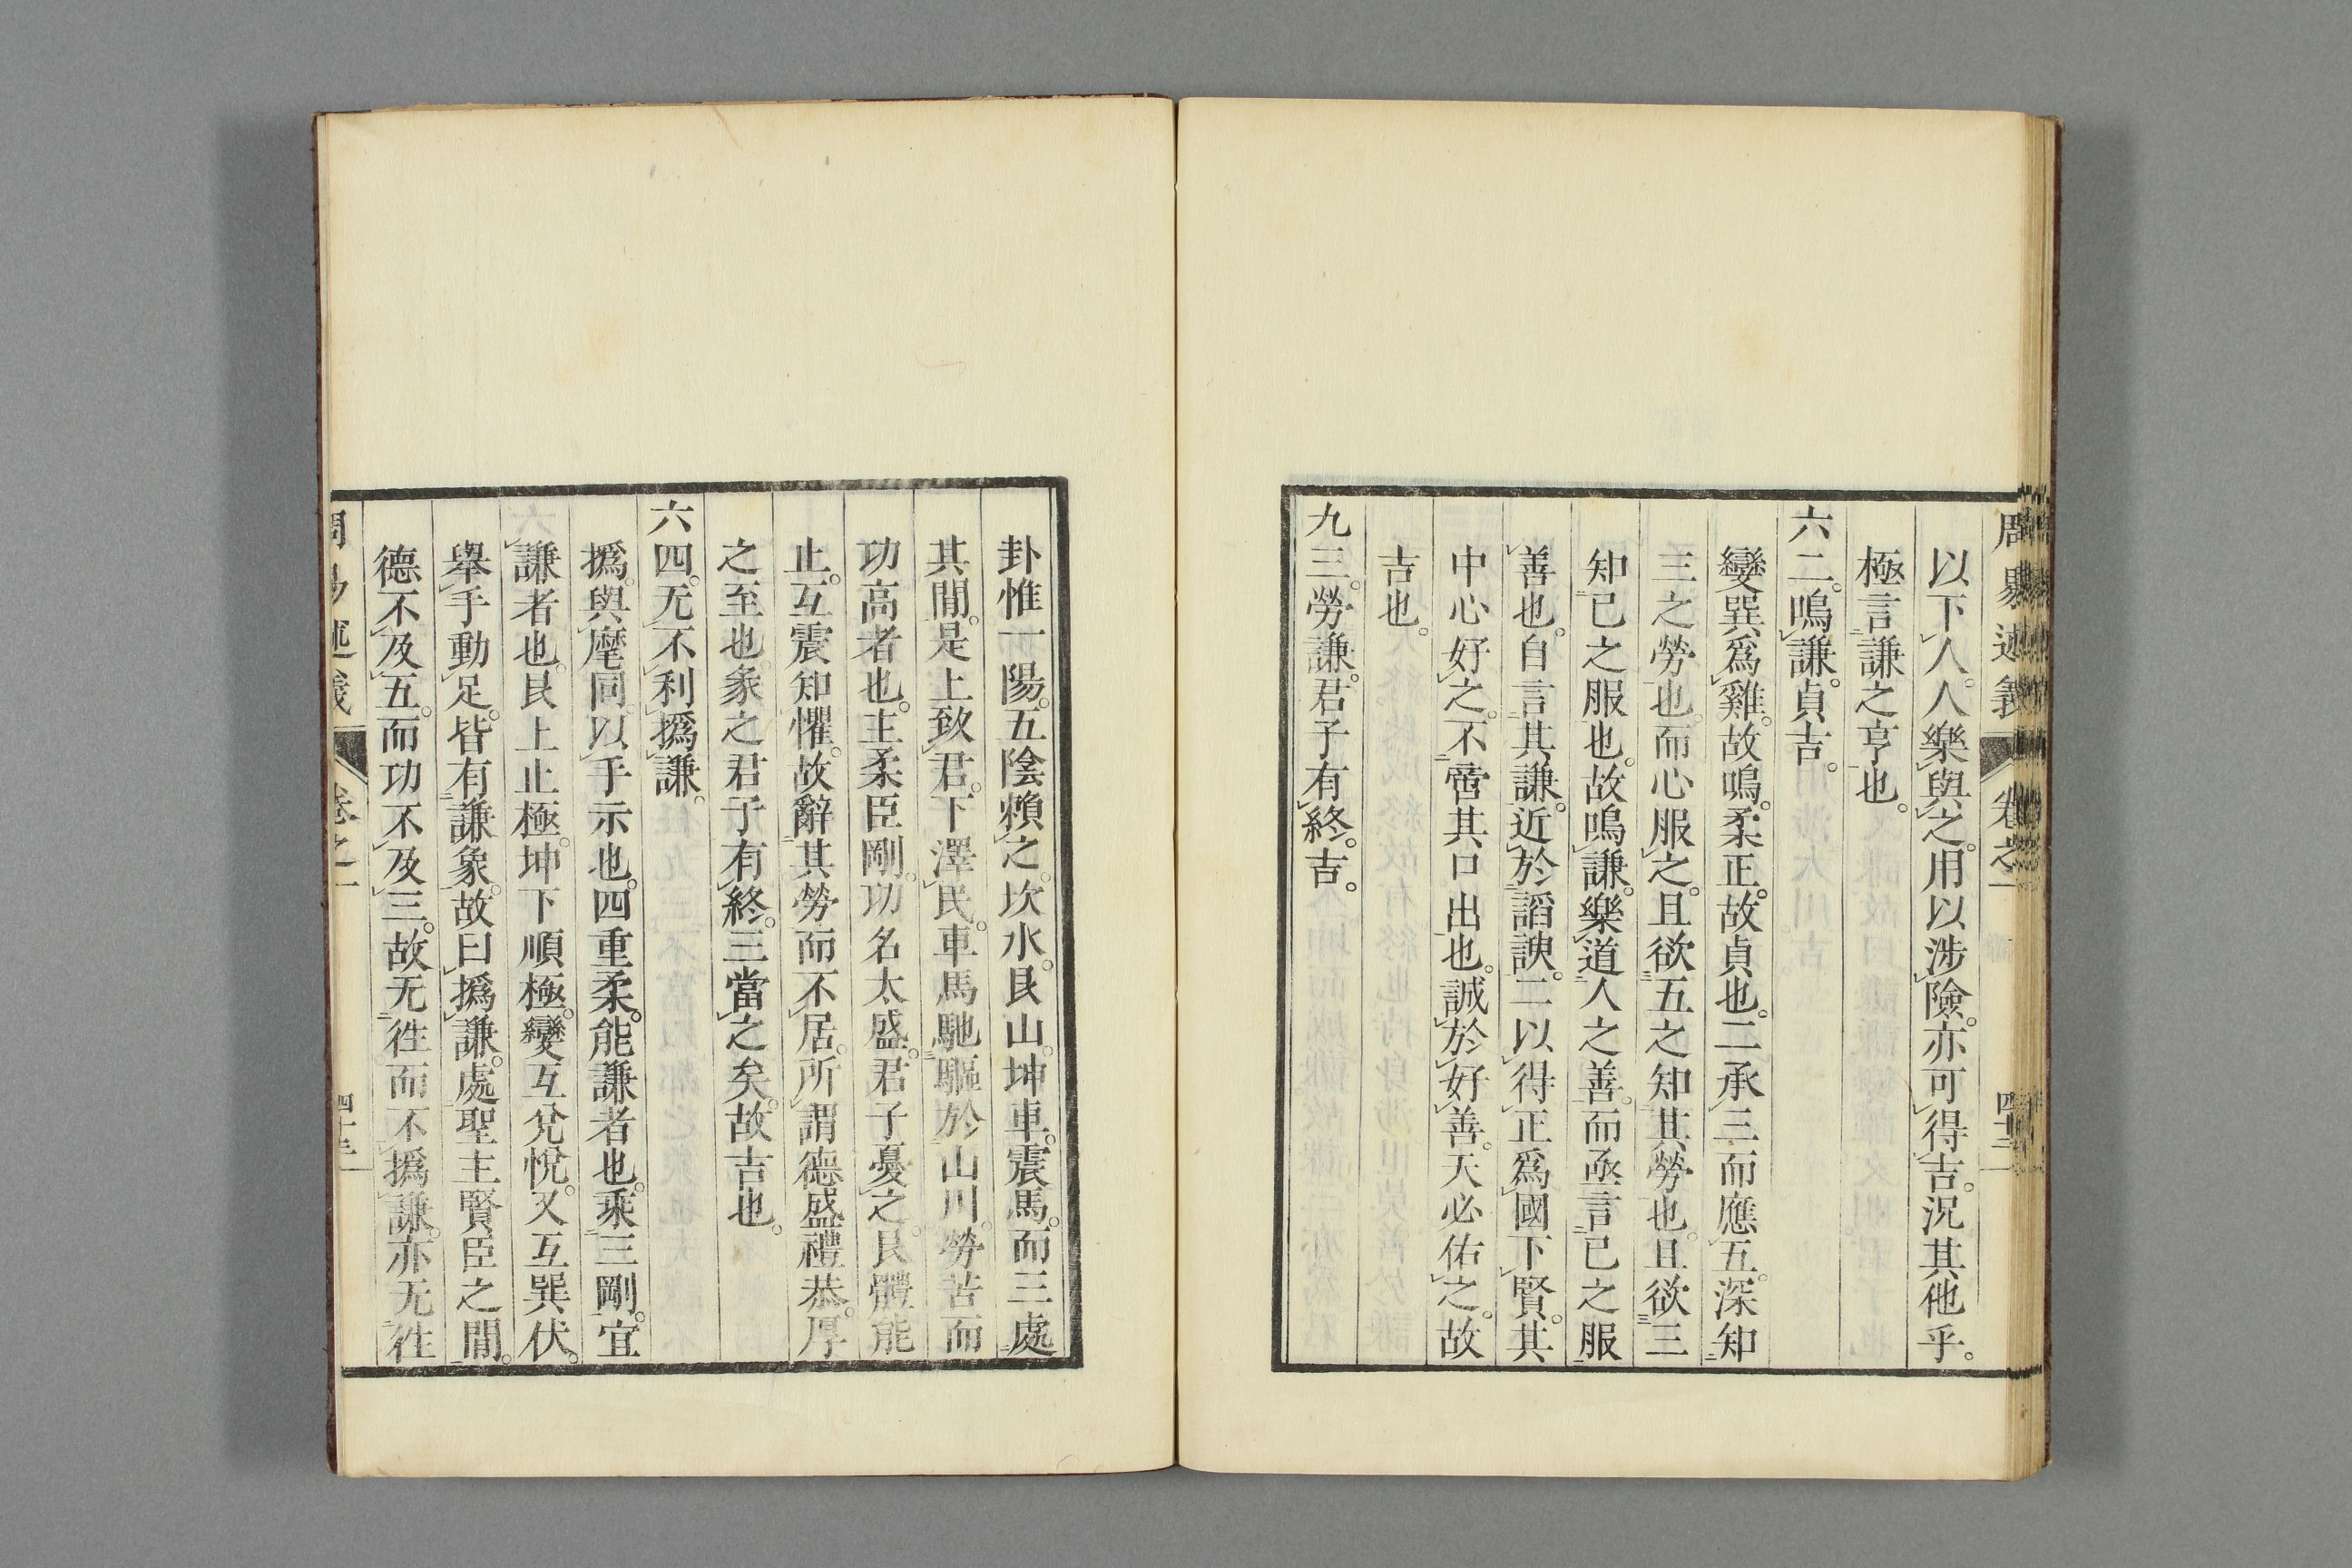 周易述義 卷之一 四十二
以下人。人樂與之。用以涉險。亦可得吉。況其他乎。
極言謙之亨也。
六二。鳴謙。貞吉。
變巽爲雞。故鳴。柔正。故貞也。二承三而應五。深知
三之勞也。而心服之。且欲五之知其勞也。且欲三
知己之服也。故鳴謙。樂道人之善。而亟言己之服
善也。自言其謙。近於諂諛。二以得正爲國下賢。其
中心好之。不啻其口出也。誠於好善。天必佑之。故
吉也。
九三。勞謙。君子有終。吉。
卦惟一陽。五陰賴之。坎水。艮山。坤車。震馬。而三處
其閒。是上致君。下澤民。車馬馳驅於山川。勞苦而
功高者也。主柔臣剛。功名太盛。君子憂之。艮體能
止。互震知懼。故辭其勞而不居。所謂德盛禮恭。厚
之至也。彖之君子有終。三當之矣。故吉也。
六四。无不利。撝謙。
撝。與麾同。以手示也。四重柔。能謙者也。乘三剛。宜
謙者也。艮上止極。坤下順極。變互兌悅。又互巽伏。
舉手動足。皆有謙象。故曰撝謙。處聖主賢臣之閒。
德不及五。而功不及三。故无往而不撝謙。亦无往
周易述義 卷之一 四十三